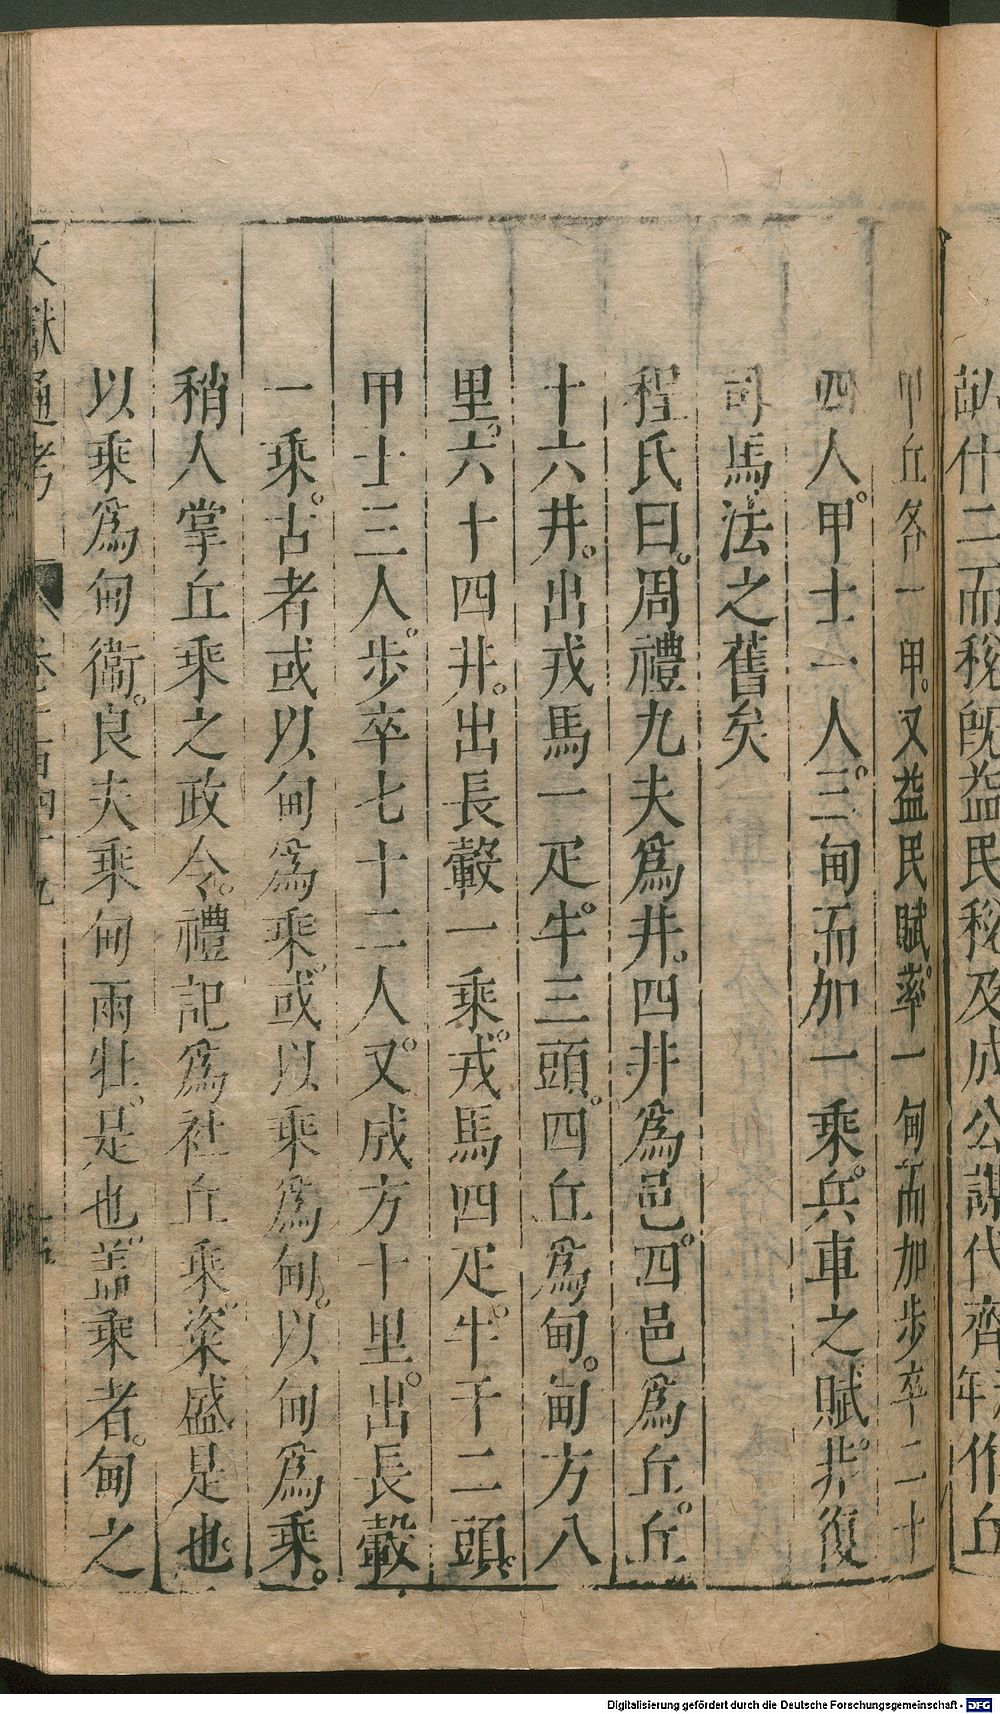 什二而稅既益民稅及成公謀代齊年作丘
甲丘各一甲又益民賦率一甸而加步卒二十
四人甲士一人三甸而加一乘兵車之賦非復
司馬法之舊矣
程氏曰周禮九夫爲井四井爲邑四邑爲丘丘
十六井出戎馬一疋牛三頭四丘爲甸甸方八
里六十四井出長轂一乘戎馬四疋牛十二頭
甲士三人步卒七十二人又成方十里出長轂
一乘古者或以甸爲乘或以乘爲甸以甸爲乘
稍人掌丘乘之政令禮記爲社丘乘粢盛是也
以乘爲甸衞良夫乘甸兩牡是也盖乘者甸之
文獻通考 卷百四十九
Digitalisierung gefördert durch die Deutsche Forschungsgemeinschaft - DFG